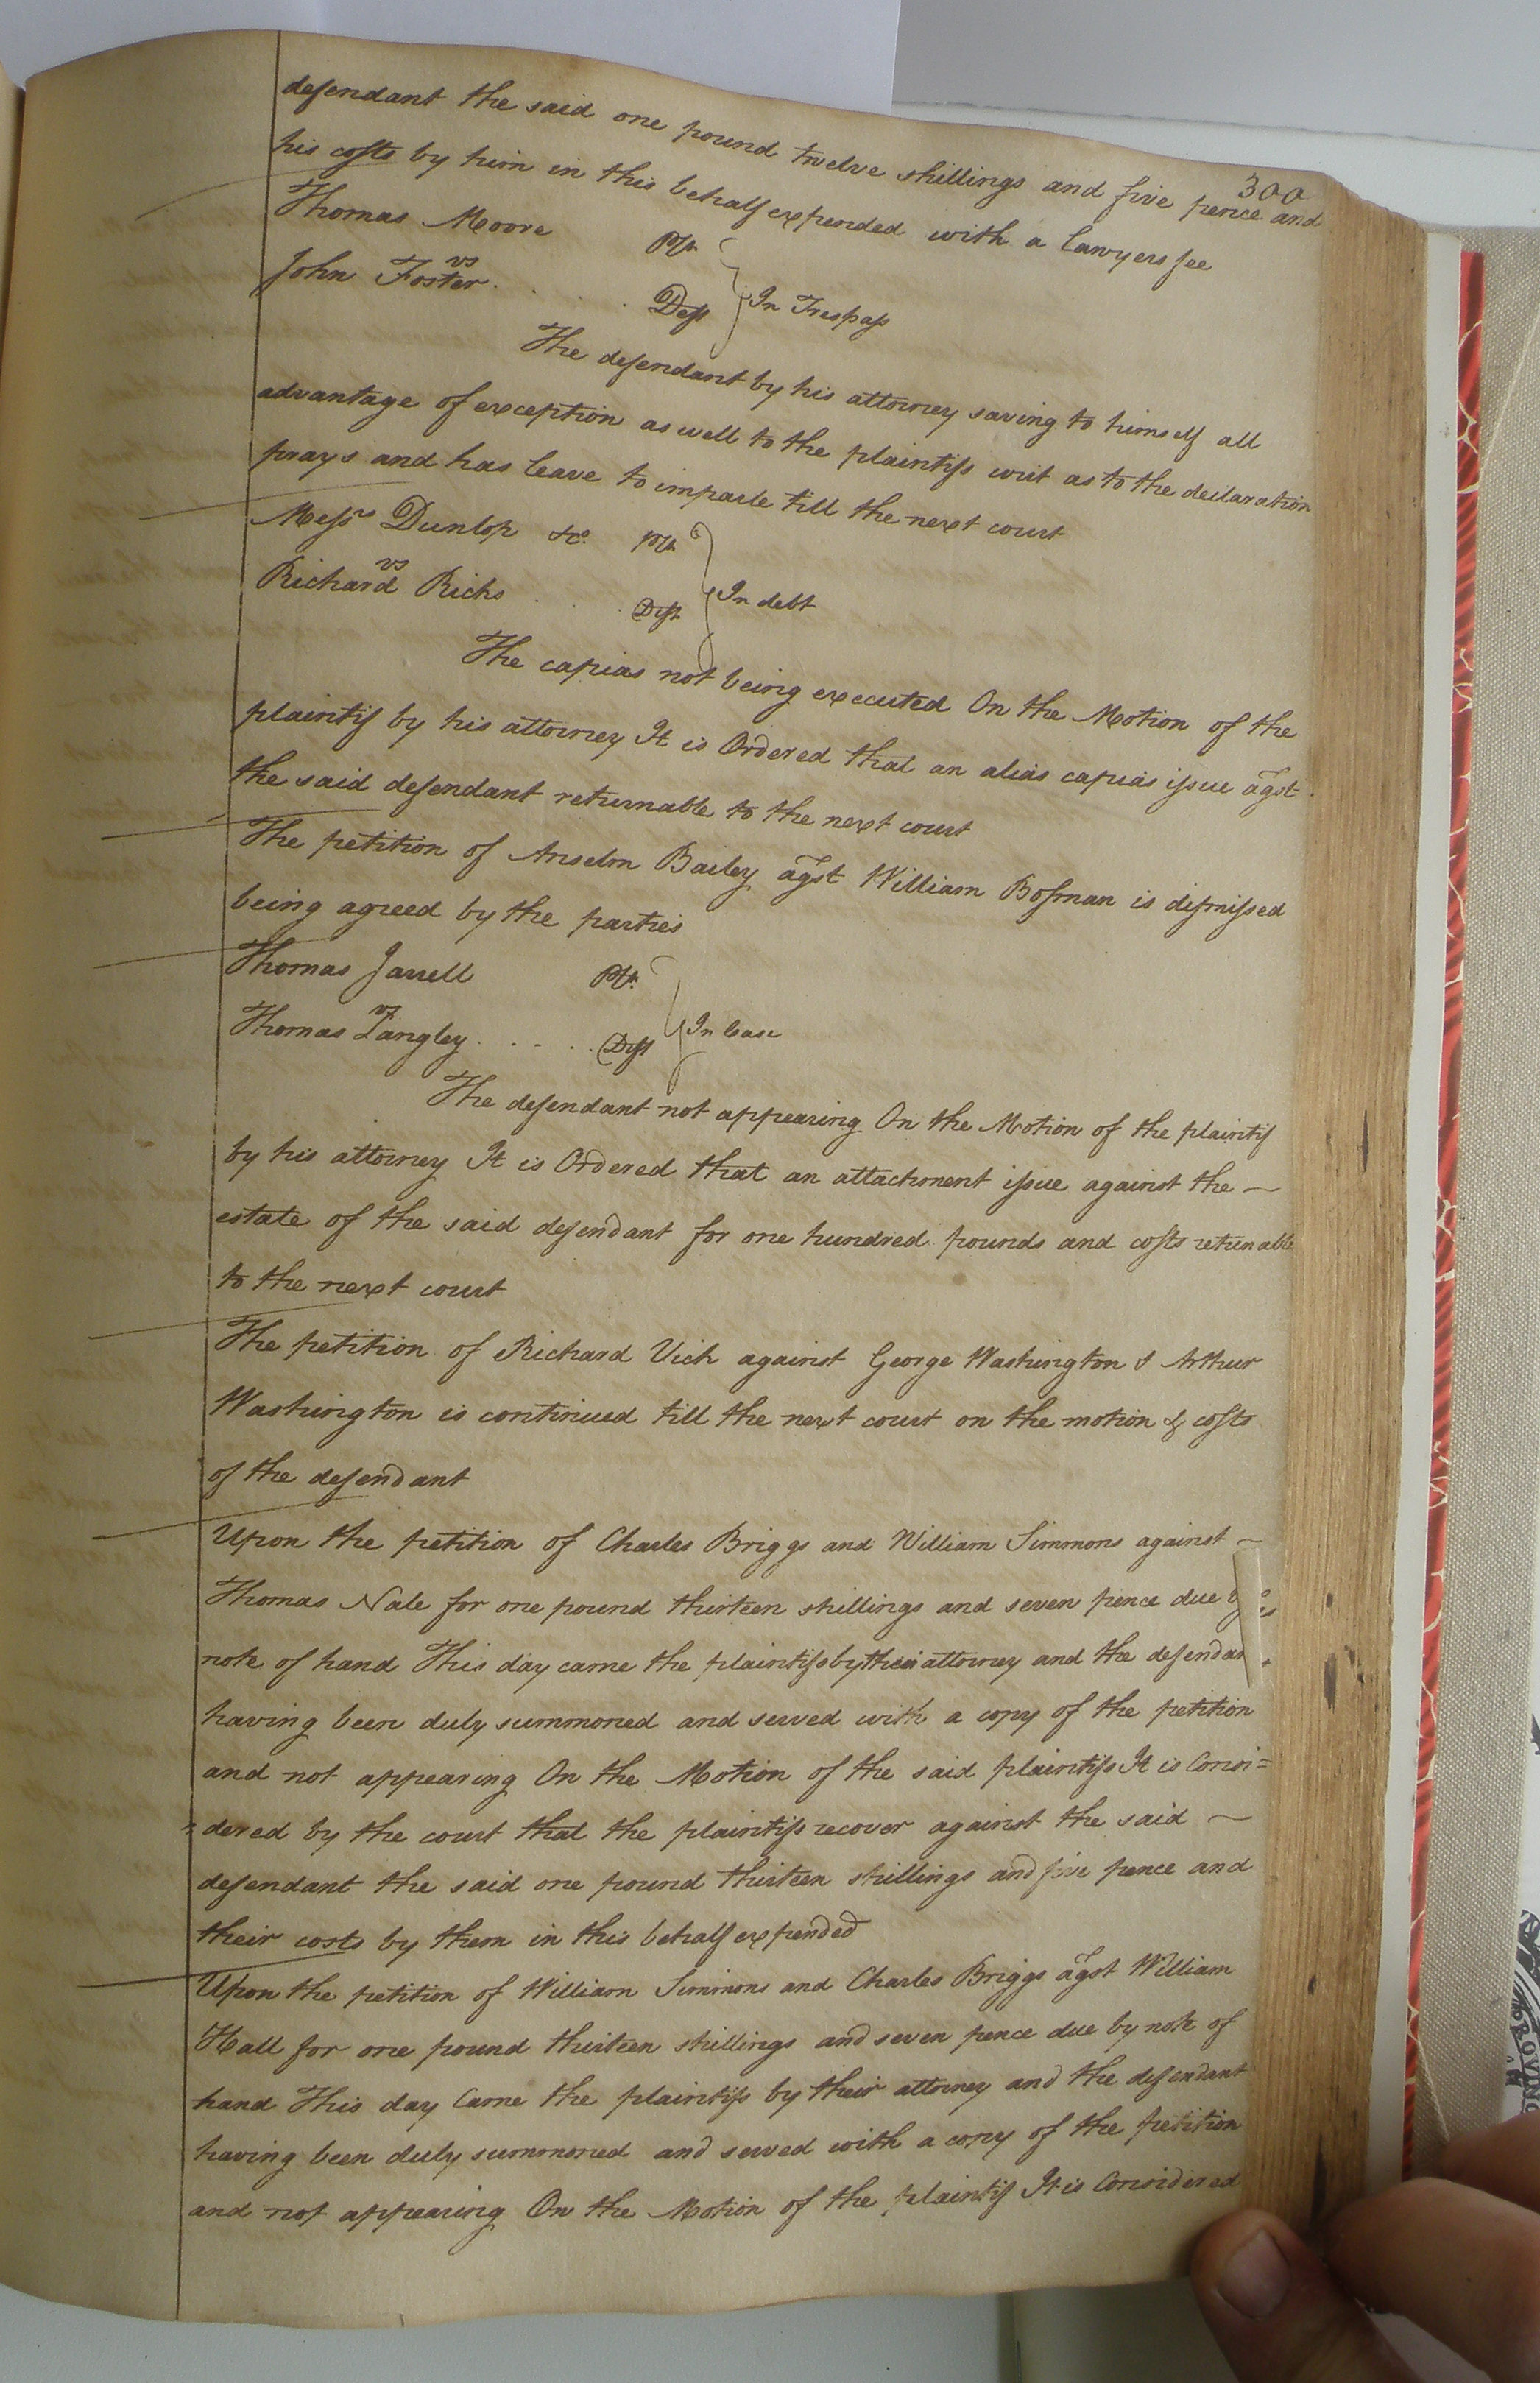 300
defendant the said one pound twelve shillings and five pence and
his costs by him in this behalf expended with a Lawyers fee
Thomas Moore Plt.
vs
John Foster . . . . Deft } In Trespass
The defendant by his attorney saving to himself all
advantage of exception as well to the plaintifs writ as to the declaration
prays and has leave to imparle till the next court
Messrs Dunlop &Co. Plt.
vs
Richard Ricks . . . Deft } In debt
The capias not being executed On the Motion of the
plaintif by his attorney It is Ordered that an alias capias issue agst.
the said defendant returnable to the next court
The petition of Anselm Bailey agst William Bosman is dismissed
being agreed by the parties
Thomas Jarrell Plt.
vs
Thomas Langley . . . . . Deft } In Case
The defendant not appearing On the Motion of the plaintif
by his attorney It is Ordered that an attachment issue against the —
estate of the said defendant for one hundred pounds and costs retunable
to the next court
The petition of Richard Vick against George Washington & Arthur
Washington is continued till the next court on the motion & costs
of the defendant
Upon the petition of Charles Briggs and William Simmons against —
Thomas Nale for one pound thirteen shillings and seven pence due
note of hand This day came the plaintifs by their attorney and the defendant
having been duly summoned and served with a copy of the petition
and not appearing On the Motion of the said plaintifs It is Consi=
=dered by the court that the plaintifs recover against the said —
defendant the said one pound thirteen shillings and five pence and
their costs by them in this behalf expended
Upon the petition of William Simmons and Charles Briggs agst William
Hall for one pound thirteen shillings and seven pence due by note of
hand This day Came the plaintifs by their attorney and the defendant
having been duly summoned and served with a copy of the petition
and not appearing On the Motion of the plaintif It is Considered